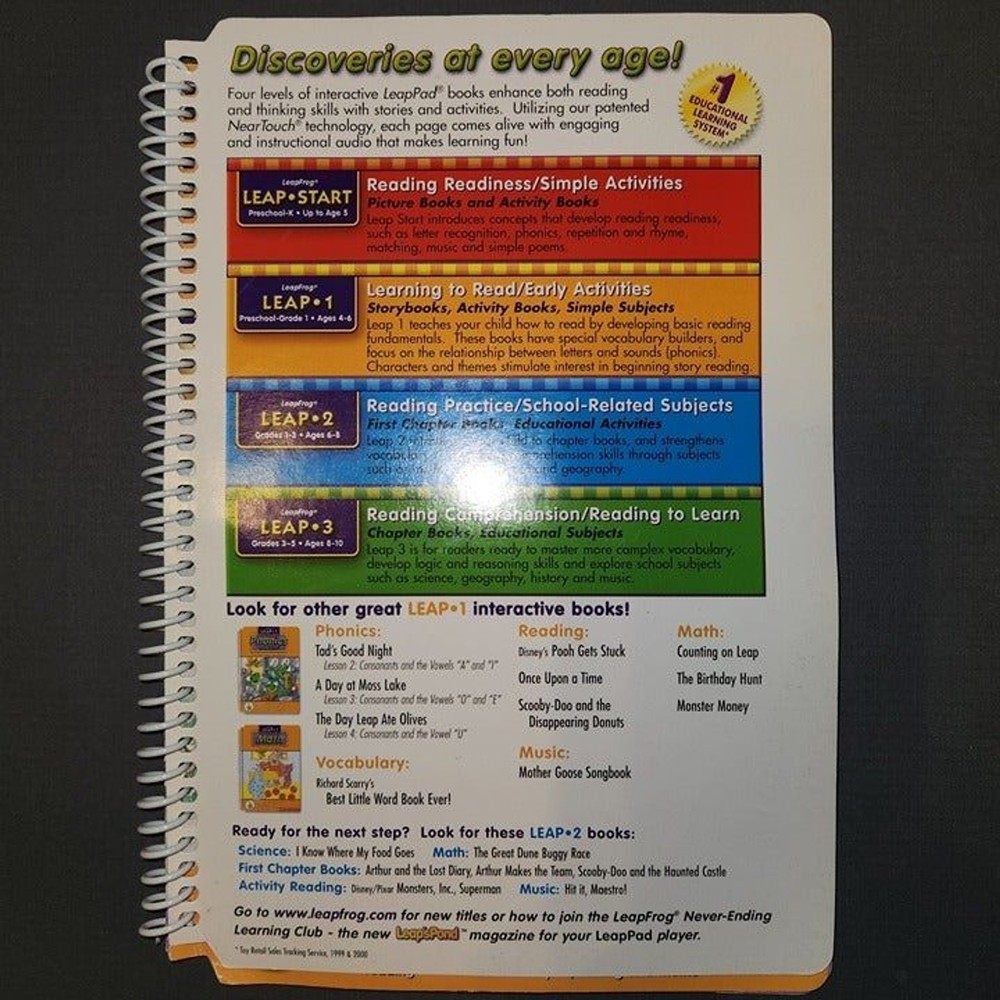 Discoveries at every age!
Four levels of interactive LeapPad® books enhance both reading
and thinking skills with stories and activities. Utilizing our patented
NearTouch® technology, each page comes alive with engaging
and instructional audio that makes learning fun!
#1
EDUCATIONAL
LEARNING
SYSTEM*
LeapFrog®
LEAP•START
Preschool-K • Up to Age 5
Reading Readiness/Simple Activities
Picture Books and Activity Books
Leap Start introduces concepts that develop reading readiness,
such as letter recognition, phonics, repetition and rhyme,
matching, music and simple poems.
LeapFrog®
LEAP•1
Preschool-Grade 1 • Ages 4-6
Learning to Read/Early Activities
Storybooks, Activity Books, Simple Subjects
Leap 1 teaches your child how to read by developing basic reading
fundamentals. These books have special vocabulary builders, and
focus on the relationship between letters and sounds (phonics).
Characters and themes stimulate interest in beginning story reading.
LeapFrog®
LEAP•2
Grades 1-3 • Ages 6-8
Reading Practice/School-Related Subjects
First Chapter Books, Educational Activities
Leap 2 to chapter books, and strengthens
skills through subjects
and geography.
LeapFrog®
LEAP•3
Grades 3-5 • Ages 8-10
Reading Comprehension/Reading to Learn
Chapter Books, Educational Subjects
Leap 3 is for readers ready to master more complex vocabulary,
develop logic and reasoning skills and explore school subjects
such as science, geography, history and music.
Look for other great LEAP•1 interactive books!
Phonics:
Tad's Good Night
Lesson 2: Consonants and the Vowels "A" and "I"
A Day at Moss Lake
Lesson 3: Consonants and the Vowels "O" and "E"
The Day Leap Ate Olives
Lesson 4: Consonants and the Vowel "U"
Vocabulary:
Richard Scarry's
Best Little Word Book Ever!
Reading:
Disney's Pooh Gets Stuck
Once Upon a Time
Scooby-Doo and the
Disappearing Donuts
Music:
Mother Goose Songbook
Math:
Counting on Leap
The Birthday Hunt
Monster Money
Phonics
Math
Ready for the next step? Look for these LEAP•2 books:
Science: I Know Where My Food Goes Math: The Great Dune Buggy Race
First Chapter Books: Arthur and the Lost Diary, Arthur Makes the Team, Scooby-Doo and the Haunted Castle
Activity Reading: Disney/Pixar Monsters, Inc., Superman Music: Hit it, Maestro!
Go to www.leapfrog.com for new titles or how to join the LeapFrog® Never-Ending
Learning Club - the new Leap'sPond™ magazine for your LeapPad player.
* Toy Retail Sales Tracking Service, 1999 & 2000